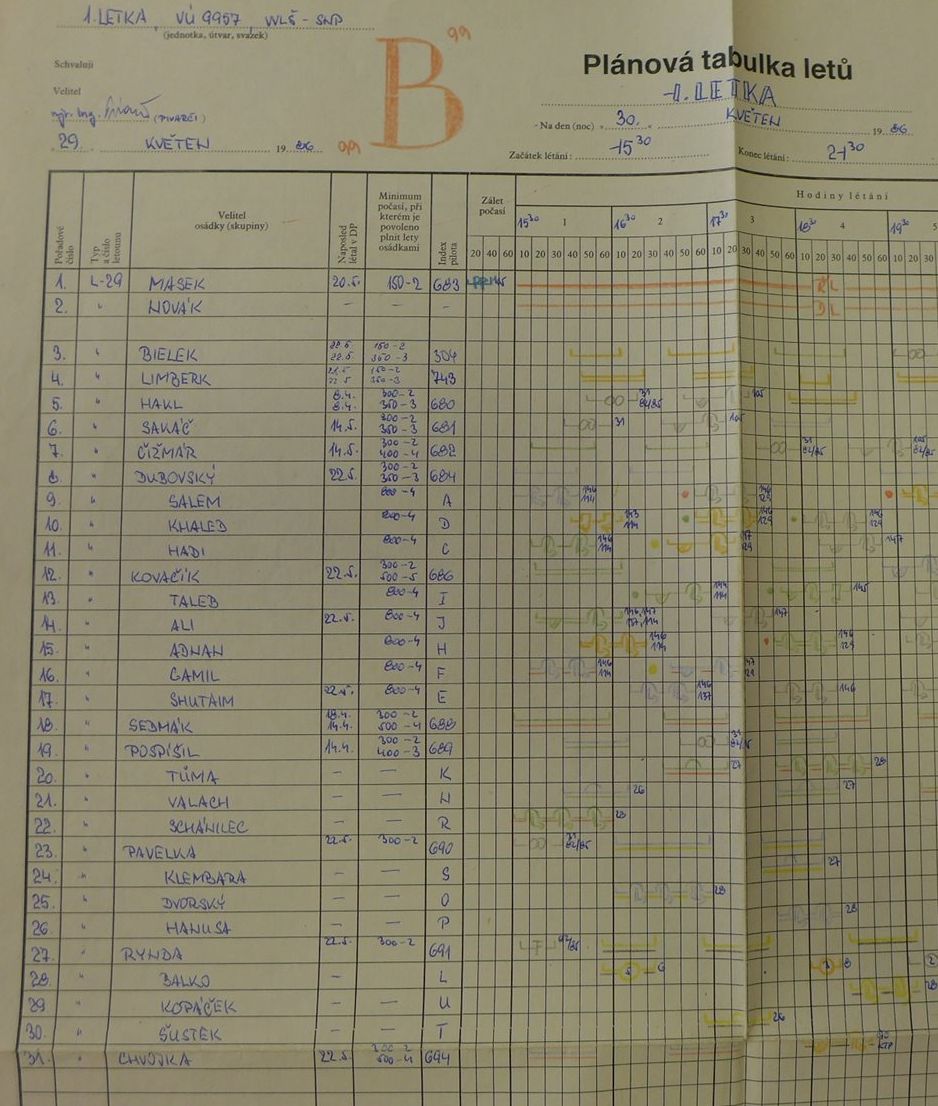 1. LETKA, VÚ 9957, VVLŠ - SNP
(jednotka, útvar, svazek)
B
99
Plánová tabulka letů
1. LETKA
Schvaluji
Velitel
mjr. Ing. (PIVARČI)
29. KVĚTEN 1986
99
Na den (noc) „ 30. “ KVĚTEN 1986
Začátek létání: 15 30
Konec létání: 21 30
Pořadové číslo
Typ a číslo letounu
Velitel osádky (skupiny)
Naposled létal v DP
Minimum počasí, při kterém je povoleno plnit lety osádkami
Index pilota
Zálet počasí
Hodiny létání
15 30 1 16 30 2 17 30 3 18 30 4 19 30 5
20 40 60 10 20 30 40 50 60 10 20 30 40 50 60 10 20 30 40 50 60 10 20 30 40 50 60 10 20 30
1. L-29 MASEK 20.5. 150-2 683
ŘL
2. " NOVÁK - - -
DL
3. " BIELEK 22.5. 150-2 304
22.5. 350-3
4. " LIMBERK 21.5. 150-2 743
22.5. 350-3
5. " HAKL 8.4. 300-2 680 31 82/85 105
8.4. 350-3
6. " SAKÁČ 14.5. 300-2 681 31 105
350-3
7. " ČIŽMÁR 14.5. 300-2 682 31 82/85
400-4
8. " DUBOVSKÝ 22.5. 300-2 684
350-3
9. " SALEM 800-4 A 146 114 146 129
10. " KHALED 800-4 D 114 146 129 129
11. " HADI 800-4 C 146 114 147
12. " KOVAČIK 22.5. 300-2 686
500-5
13. " TALEB 800-4 I 114 145
14. " ALI 22.5. 800-4 J 146, 147 137, 114 147
15. " ADNAN 800-4 H 146 114 146 129
16. " GAMIL 800-4 F 146 114
17. " SHUTAIM 22.5. 800-4 E 146 137 146
18. " SEDMÁK 18.4. 300-2 688
14.4. 500-4
19. " POSPÍŠIL 14.4. 300-2 689 31 82/85
400-3
20. " TŮMA - - K 27 28
21. " VALACH - - N 26 27
22. " SCHÁNILEC - - R 28
23. " PAVELKA 22.5. 300-2 690 31 82/85
24. " KLEMBARA - - S 27
25. " DVORSKÝ - - O 28
26. " HANUSA - - P 28
27. " RYNDA 22.5. 300-2 691 F 92/85
28. " BALKO - L 6 8 2
29 " KOPÁČEK - - U 28
30. " ŠUSTEK - - T 26
31. " CHVOJKA 22.5. 200-2 694
500-4